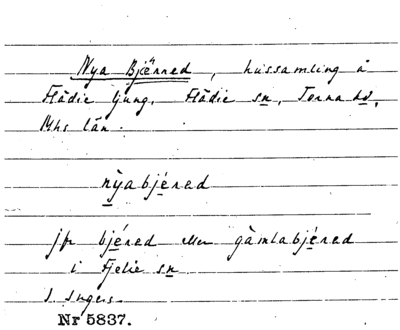 Nya Bjärred, hussamling å
Flädie ljung, Flädie sn, Torna hd,
Mhs län.
nỳabjéred
jfr bjéred eller gàmlabjéred
i Fjelie sn
Nr 5837.